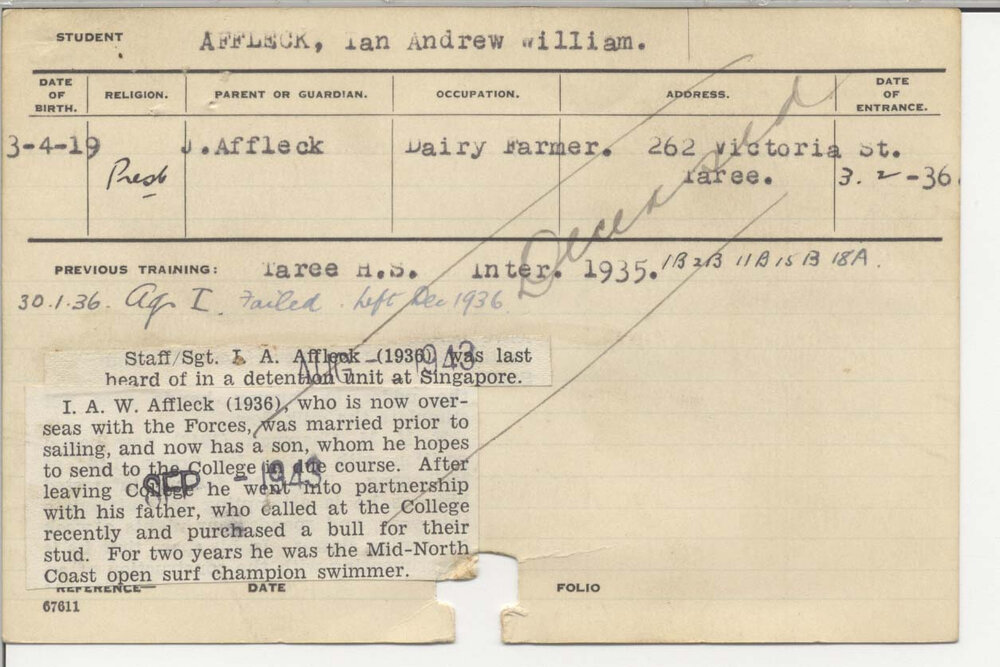 STUDENT AFFLECK, Ian Andrew William.
DATE OF BIRTH. RELIGION. PARENT OR GUARDIAN. OCCUPATION. ADDRESS. DATE OF ENTRANCE.
3-4-19 J.Affleck Dairy Farmer. 262 Victoria St.
Presb Taree. 3.2-36.
Deceased
PREVIOUS TRAINING: Taree H.S. Inter. 1935. 1B 2B 11B 15B 18A.
30.1.36. Ag I. Failed. Left Dec 1936
Staff/Sgt. I. A. Affleck (1936), was last
heard of in a detention unit at Singapore.
AUG - 1943
I. A. W. Affleck (1936), who is now over-
seas with the Forces, was married prior to
sailing, and now has a son, whom he hopes
to send to the College in due course. After
leaving College he went into partnership
with his father, who called at the College
recently and purchased a bull for their
stud. For two years he was the Mid-North
Coast open surf champion swimmer.
SEP - 1943
REFERENCE— DATE FOLIO
67611